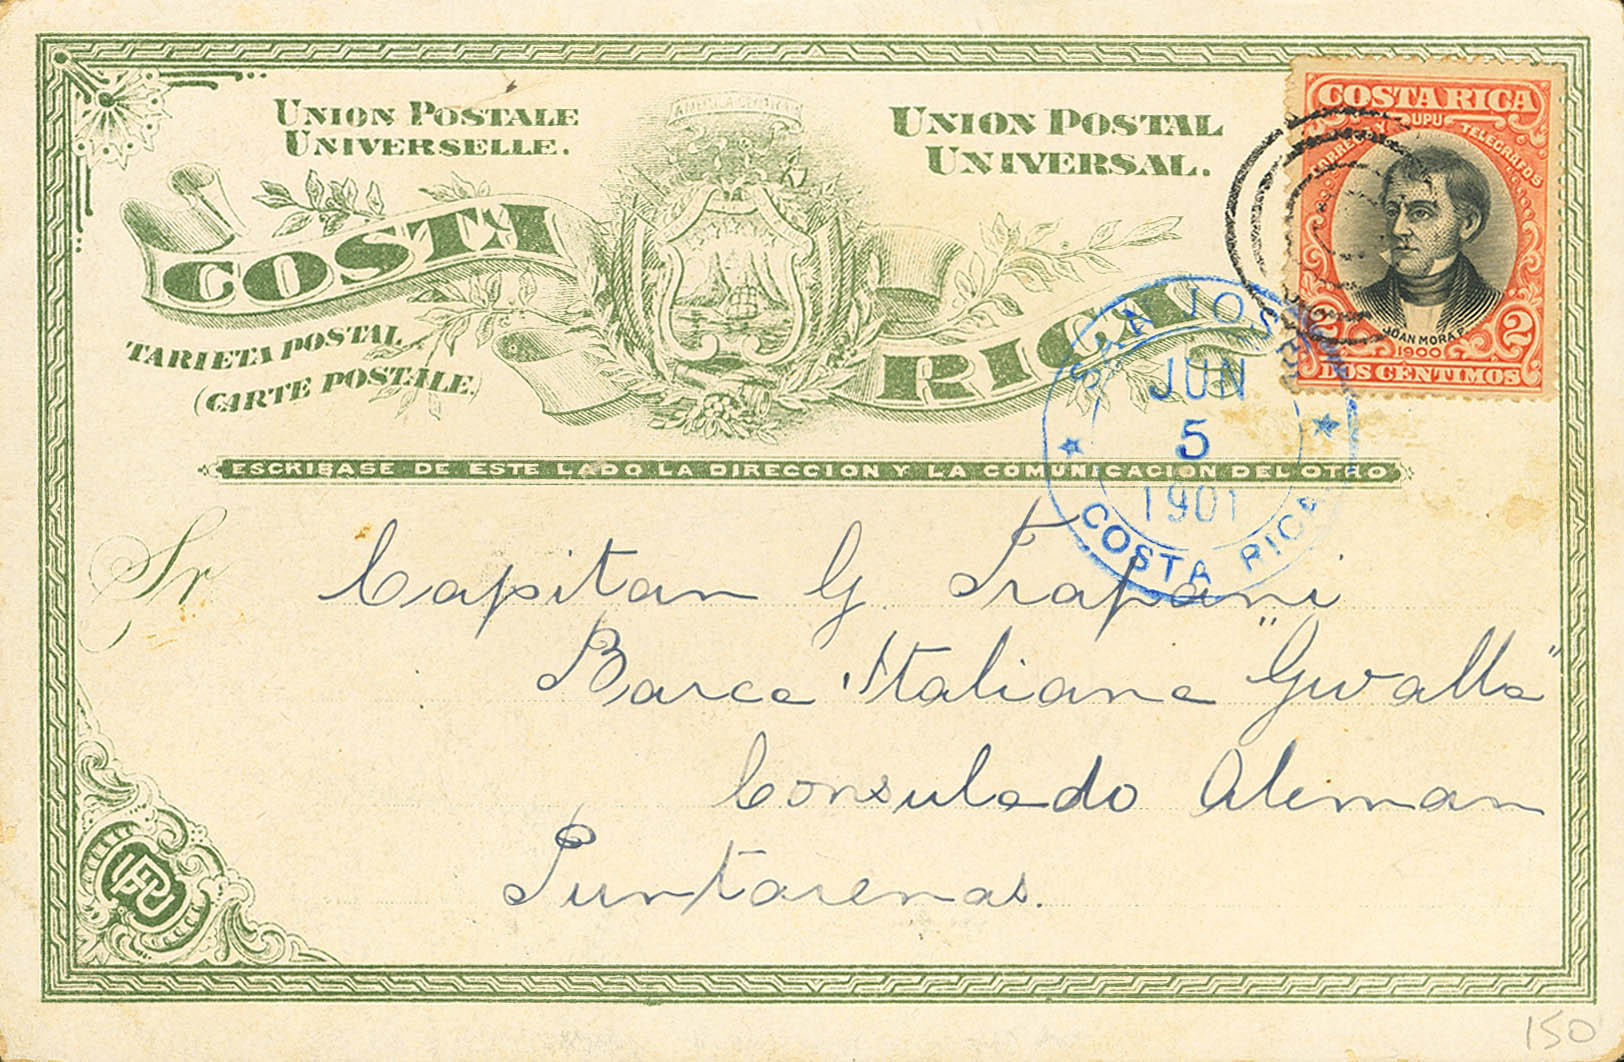 UNION POSTALE
UNIVERSELLE.
AMERICA CENTRAL
UNION POSTAL
UNIVERSAL.
COSTA RICA
TARJETA POSTAL
(CARTE POSTALE.)
ESCRIBASE DE ESTE LADO LA DIRECCION Y LA COMUNICACION DEL OTRO
COSTA RICA
CORREOS Y TELEGRAFOS
UPU
JUAN MORA F.
1900
2 2
DOS CENTIMOS
SAN JOSE
JUN
5
1901
COSTA RICA
Sr
Capitan G. Trapani
Barca Italiana "Gwalla"
Consulado Aleman
Puntarenas.
UPU
150